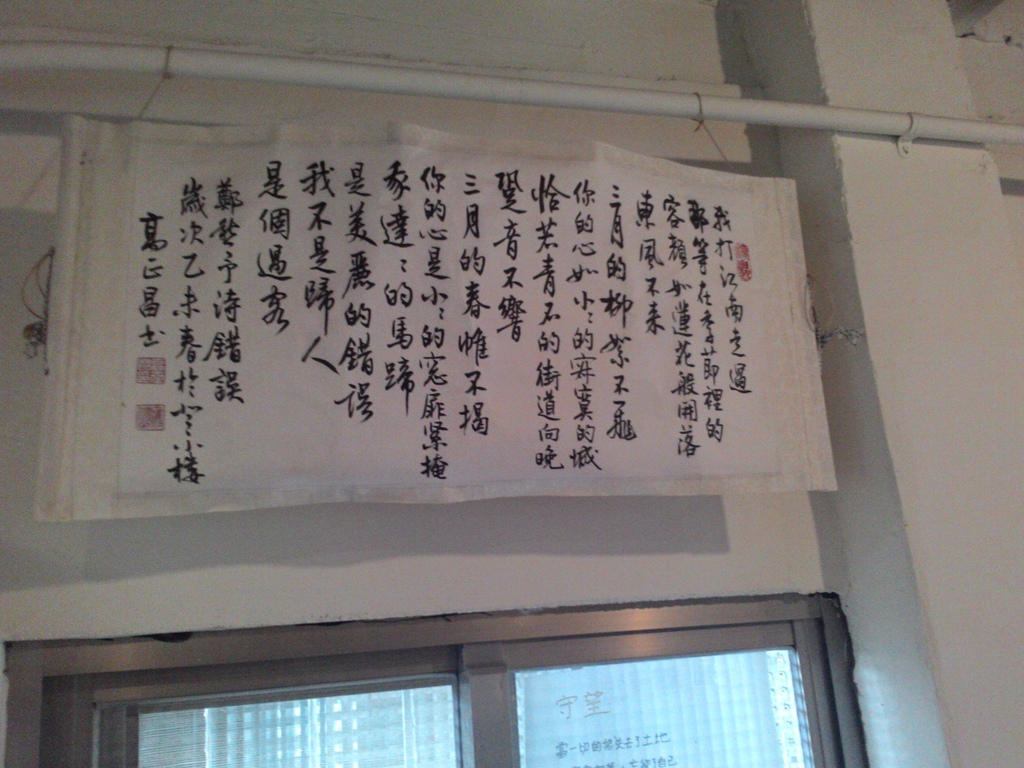 我打江南走過
那等在季節裡的
容顏如蓮花般開落
東風不來
三月的柳絮不飛
你的心如小〻的寂寞的城
恰若青石的街道向晚
跫音不響
三月的春帷不揭
你的心是小〻的窓扉緊掩
我達〻的馬蹄
是美麗的錯誤
我不是歸人
是個過客
鄭愁予詩錯誤
歲次乙未春於小樓
高正昌书
守望
當一切的失去了土地
自己